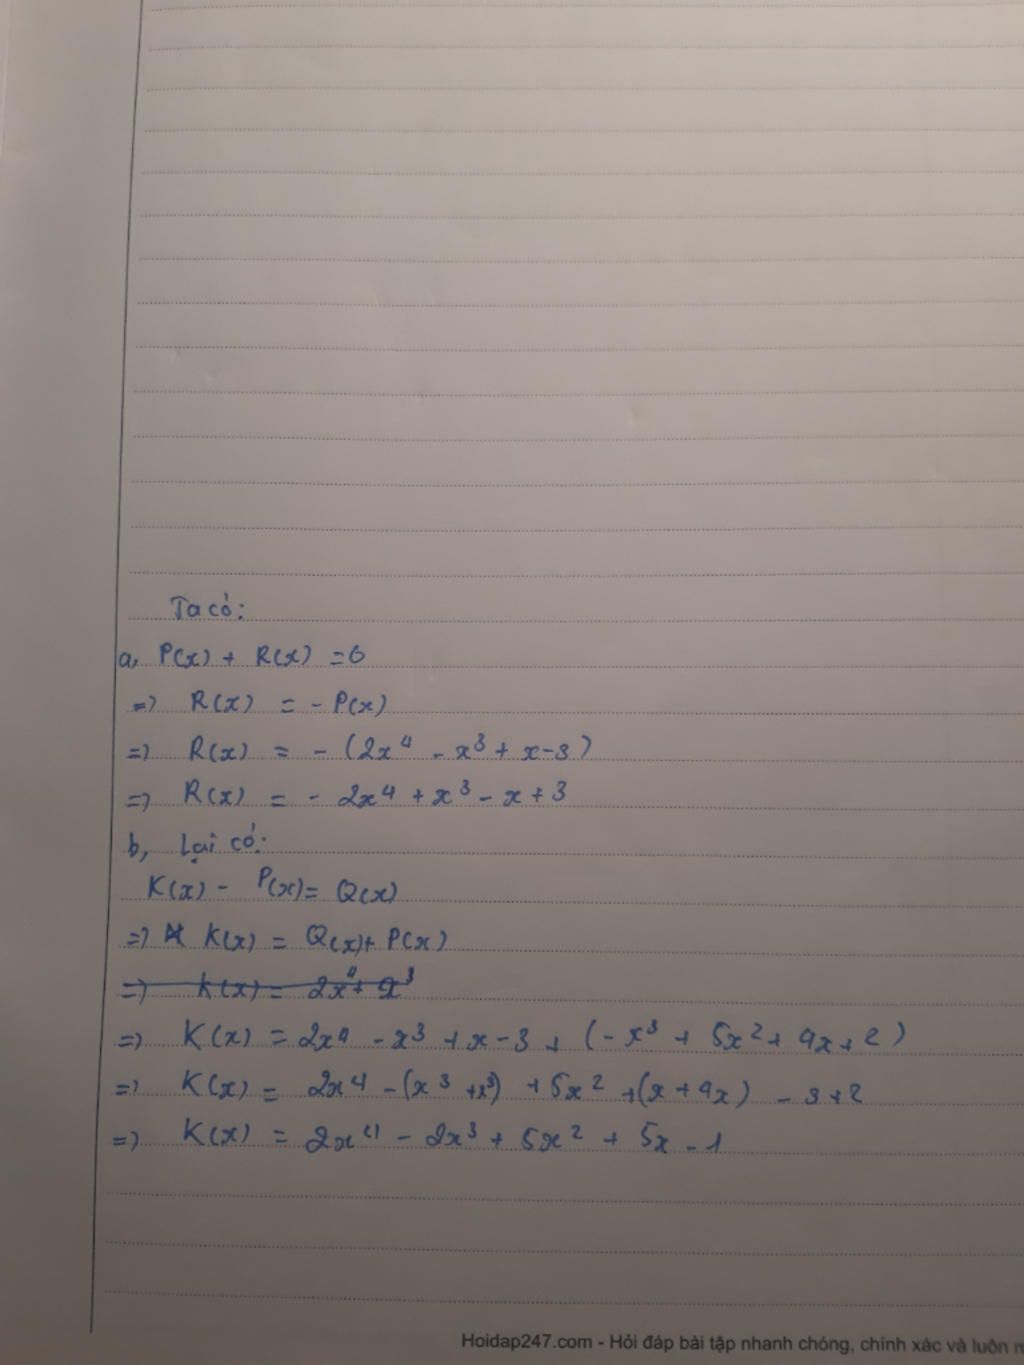 Ta có:
a, P(x) + R(x) = 0
=> R(x) = - P(x)
=> R(x) = - (2x⁴ - x³ + x-3)
=> R(x) = - 2x⁴ + x³ - x + 3
b, Lại có:
K(x) - P(x) = Q(x)
=> K(x) = Q(x) + P(x)
=> K(x) = 2x⁴ + x³
=> K(x) = 2x⁴ - x³ + x - 3 + (- x³ + 5x² + 4x + 2)
=> K(x) = 2x⁴ - (x³ + x³) + 5x² + (x + 4x) - 3 + 2
=> K(x) = 2x⁴ - 2x³ + 5x² + 5x - 1
Hoidap247.com - Hỏi đáp bài tập nhanh chóng, chính xác và luôn